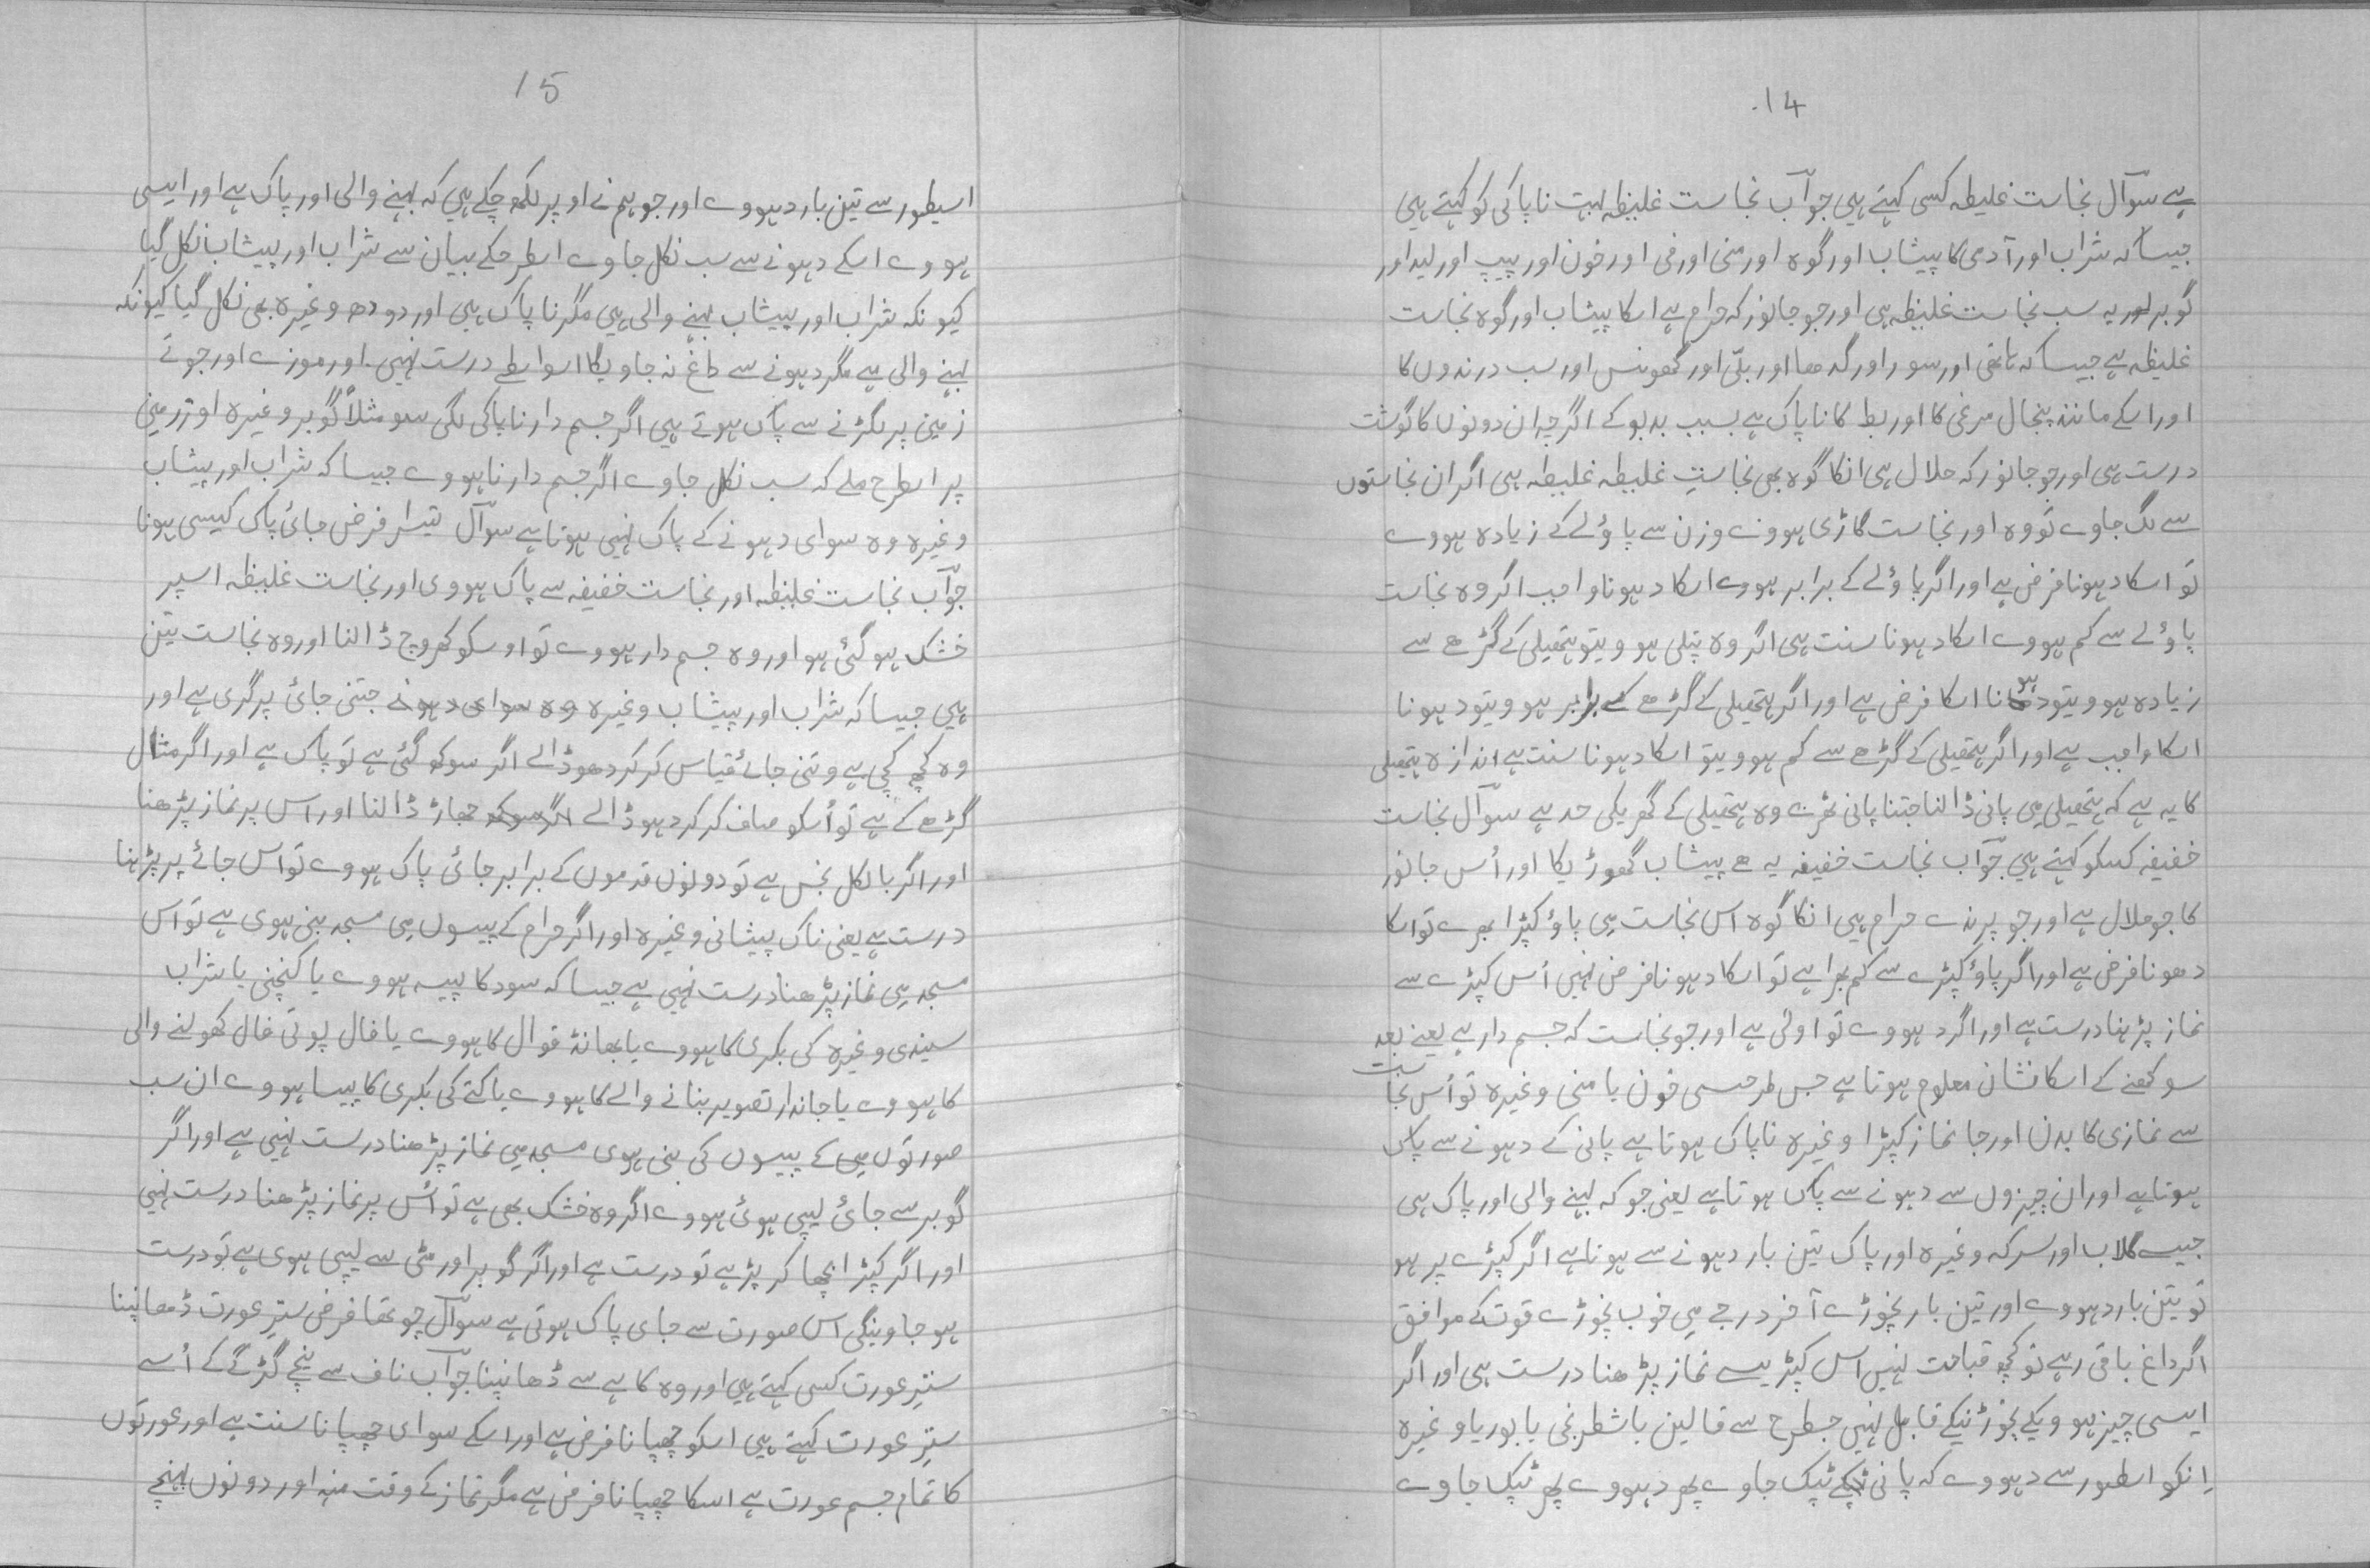 14
ہے سوآل نجاست غلیظہ کسی کہتے ہیں جوآب نجاست غلیظہ بہت ناپاکی کو کہتے ہیں
جیسا کہ شراب اور آدمی کا پیشاب اور گوہ اور منی اور قی اور خون اور پیپ اور لید اور
گوبر اور یہ سب نجاست غلیظہ ہی اور جو جانور کہ حرام ہے اسکا پیشاب اور گوہ نجاست
غلیظہ ہے جیسا کہ ہاتھی اور سور اور گدھا اور بلّی اور گھونس اور سب درندوں کا
اور اسکے مانند پنجال مرغی کا اور بط کا ناپاک ہے بسبب بدبو کے اگرچہ ان دونوں کا گوشت
درست ہی اور جو جانور کہ حلال ہی انکا گوہ بھی نجاستِ غلیظہ غلیظہ ہی اگر ان نجاستوں
سے لگ جاوے تو وہ اور نجاست گاڑی ہووے وزن سے پاؤلے کے زیادہ ہووے
تو اسکا دہونا فرض ہے اور اگر پاؤلے کے برابر ہووے اسکا دہونا واجب اگر وہ نجاست
پاؤلے سے کم ہووے اسکا دہونا سنت ہی اگر وہ پتلی ہوویتو ہتھیلی کے گڑھے سے
زیادہ ہوویتو دہونا اسکا فرض ہے اور اگر ہتھیلی کے گڑھے کے برابر ہوویتو دہونا
اسکا واجب ہے اور اگر ہتھیلی کے گڑھے سے کم ہوویتو اسکا دہونا سنت ہے اندازہ ہتھیلی
کا یہ ہے کہ ہتھیلی میں پانی ڈالنا جتنا پانی ٹھرے وہ ہتھیلی کے گھریکی حد ہے سوآل نجاست
خفیفہ کسکو کہتے ہیں جوآب نجاست خفیفہ یہ ہے پیشاب گھوڑیکا اور اُس جانور
کا جو حلال ہے اور جو پرندے حرام ہیں انکا گوہ اس نجاست میں پاؤ کپڑا بھرے تو اسکا
دھونا فرض ہے اور اگر پاؤ کپڑے سے کم بھرا ہے تو اسکا دہونا فرض نہیں اُس کپڑے سے
نماز پڑہنا درست ہے اور اگر دہووے تو اولیٰ ہے اور جو نجاست کہ جسم دار ہے یعنے بعد
سوکھنے کے اسکا نشان معلوم ہوتا ہے جس طرحسی خون یا منی وغیرہ تو اُس نجاست
سے نمازی کا بدن اور جا نماز کپڑا وغیرہ ناپاک ہوتا ہے پانی کے دہونے سے پاک
ہوتا ہے اور ان چیزوں سے دہونے سے پاک ہوتا ہے یعنی جو کہ بہنے والی اور پاک ہی
جیسے گلاب اور سرکہ وغیرہ اور پاک تین بار دہونے سے ہوتا ہے اگر کپڑے پر ہو
تو تین بار دہووے اور تین بار نچوڑے آخر درجے میں خوب نچوڑے قوت کے موافق
اگر داغ باقی رہے تو کچھ قباحت نہیں اس کپڑیسے نماز پڑھنا درست ہی اور اگر
ایسی چیز ہوویکے نچوڑنیکے قابل نہیں جسطرح سے قالین یا شطرنجی یا بوریا وغیرہ
اِنکو اسطور سے دہووے کہ پانی ٹپکے ٹپک جاوے پھر دہووے پھر ٹپک جاوے
15
اسیطور سے تین بار دہووے اور جو ہم نے اوپر لکھ چکے ہیں کہ بہنے والی اور پاک ہے اور ایسی
ہووے اسکے دہونے سے سب نکل جاوے اسطرحکے بیان سے شراب اور پیشاب نکل گیا
کیونکہ شراب اور پیشاب بہنے والی ہیں مگر ناپاک ہیں اور دودھ وغیرہ بھی نکل گیا کیونکہ
بہنے والی ہے مگر دہونے سے داغ نہ جاویگا اسواسطے درست نہیں۔ اور موزے اور جوتے
زمین پر رگڑنے سے پاک ہوتے ہیں اگر جسم دار ناپاکی لگی ہو مثلاً گوبر وغیرہ اور زمین
پر اسطرح ملے کہ سب نکل جاوے اگر جسم دار نا ہووے جیسا کہ شراب اور پیشاب
وغیرہ وہ سوای دہونے کے پاک نہیں ہوتا ہے سوآل تیسرا فرض جائ پاک کیسی ہونا
جوآب نجاست غلیظہ اور نجاست خفیفہ سے پاک ہووی اور نجاست غلیظہ اسپر
خشک ہو گئی ہو اور وہ جسم دار ہووے تو اوسکو کھروچ ڈالنا اور وہ نجاست تین
ہیں جیسا کہ شراب اور پیشاب وغیرہ وہ سوای دہونے جتنی جائ پر گری ہے اور
وہ کچھ کچی ہے وتنی جائے قیاس کر کر دھو ڈالے اگر سوکھ گئی ہے تو پاک ہے اور اگر مثال
گڑھے کے ہے تو اُسکو صاف کر کر دہو ڈالے اگر سوکھ جھاڑ ڈالنا اور اس پر نماز پڑھنا
اور اگر بالکل نجس ہے تو دونوں قدموں کے برابر جائی پاک ہووے تو اس جائے پر پڑہنا
درست ہے یعنی ناک پیشانی وغیرہ اور اگر حرام کے پیسوں میں مسجد بنی ہوی ہے تو اس
مسجد میں نماز پڑھنا درست نہیں ہے جیسا کہ سود کا پیسہ ہووے یا کنچنی یا شراب
سیندی وغیرہ کی بکری کا ہووے یا بھانڈ قوال کا ہووے یا فال پوتی فال کھولنے والی
کا ہووے یا جاندار تصویر بنانے والے کا ہووے یا کتے کی بکری کا پیسا ہووے ان سب
صورتوں میں کے پیسوں کی بنی ہوی مسجد میں نماز پڑھنا درست نہیں ہے اور اگر
گوبر سے جائ لیپی ہوئ ہووے اگر وہ خشک بھی ہے تو اُس پر نماز پڑھنا درست نہیں
اور اگر کپڑا بچھا کر پڑہے تو درست ہے اور اگر گوبر اور مٹی سے لیپی ہوی ہے تو درست
ہو جاوینگی اس صورت سے جای پاک ہوتی ہے سوآل چوتھا فرض سترِ عورت ڈھانپنا
سترِ عورت کسی کہتے ہیں اور وہ کاہے سے ڈھانپنا جوآب ناف سے نیچے گڑگے کے اُسے
سترِ عورت کہتے ہیں اسکو چھپانا فرض ہے اور اسکے سوای چھپانا سنت ہے اور عورتوں
کا تمام جسم عورت ہے اسکا چھپانا فرض ہے مگر نماز کے وقت منہ اور دونوں پہنچے